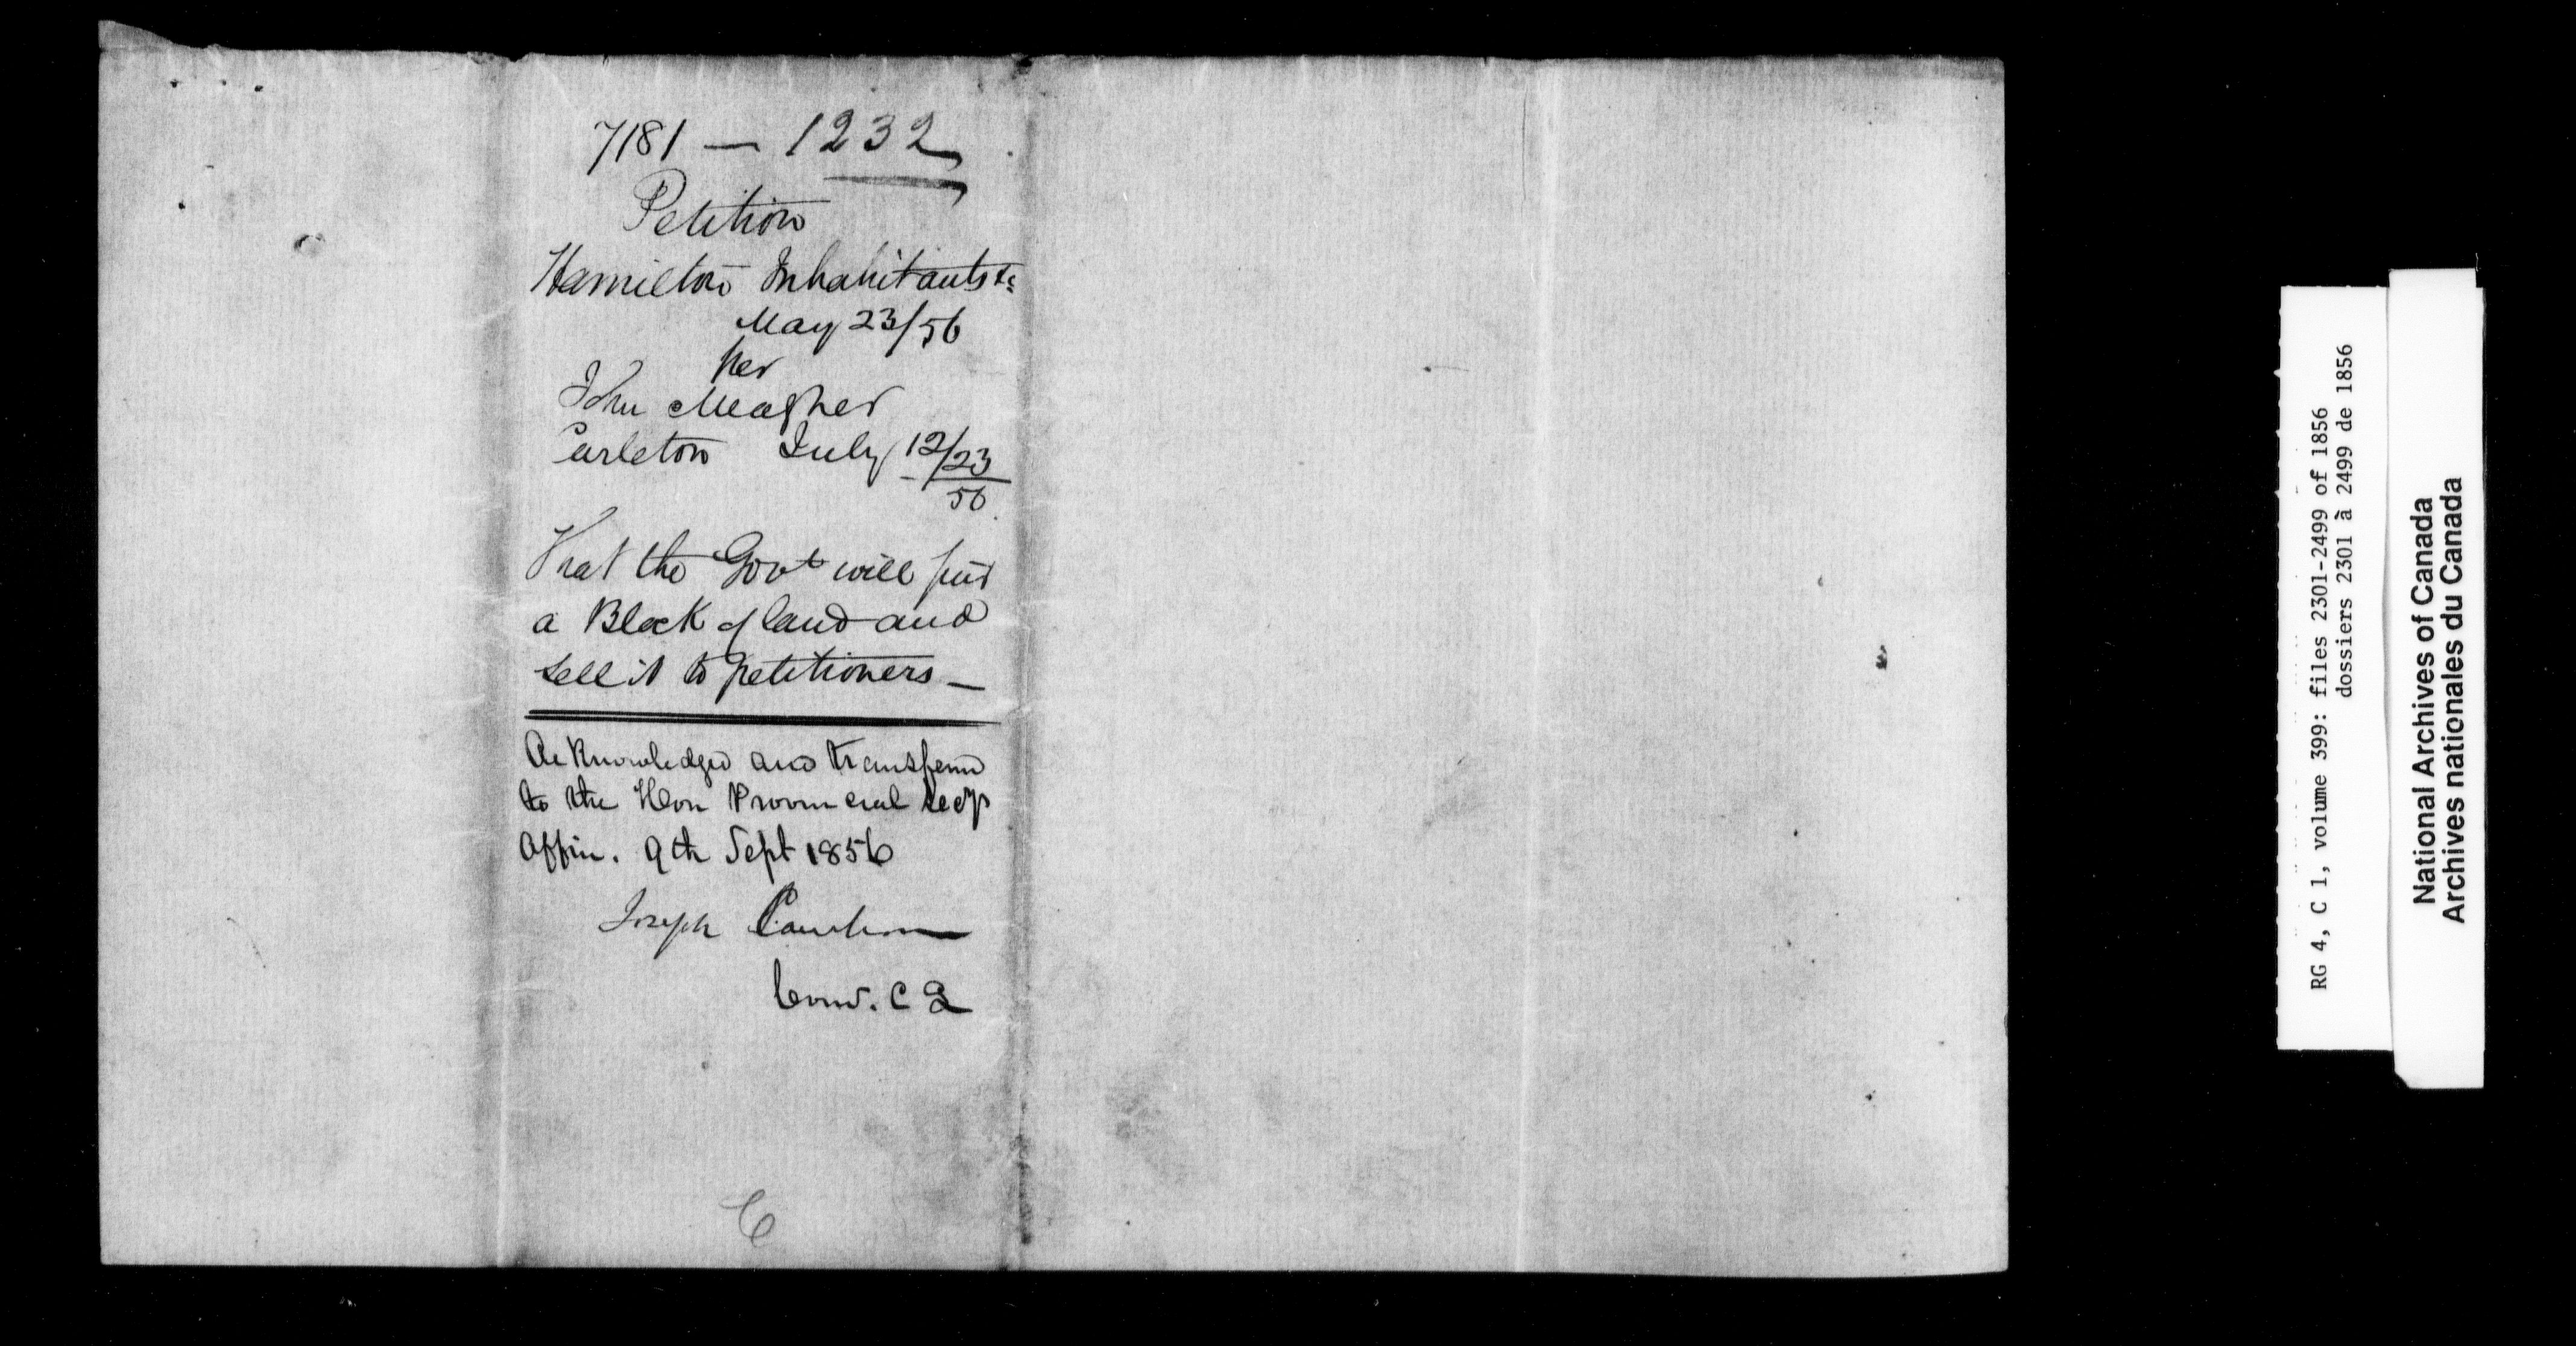 7181 — 1232
Petition
Hamilton Inhabitants &c
May 23/56
Per
John Meagher
Carleton July 12/23
56
That the Govt will pur
a Block of land and
sell it to petitioners —
Acknowledged and transferred
to the Hon Provincial Secy
Office. 9th Sept 1856
Joseph Cauchon
Com. C L
C
RG 4, C 1, volume 399: files 2301-2499 of 1856
dossiers 2301 à 2499 de 1856
National Archives of Canada
Archives nationales du Canada